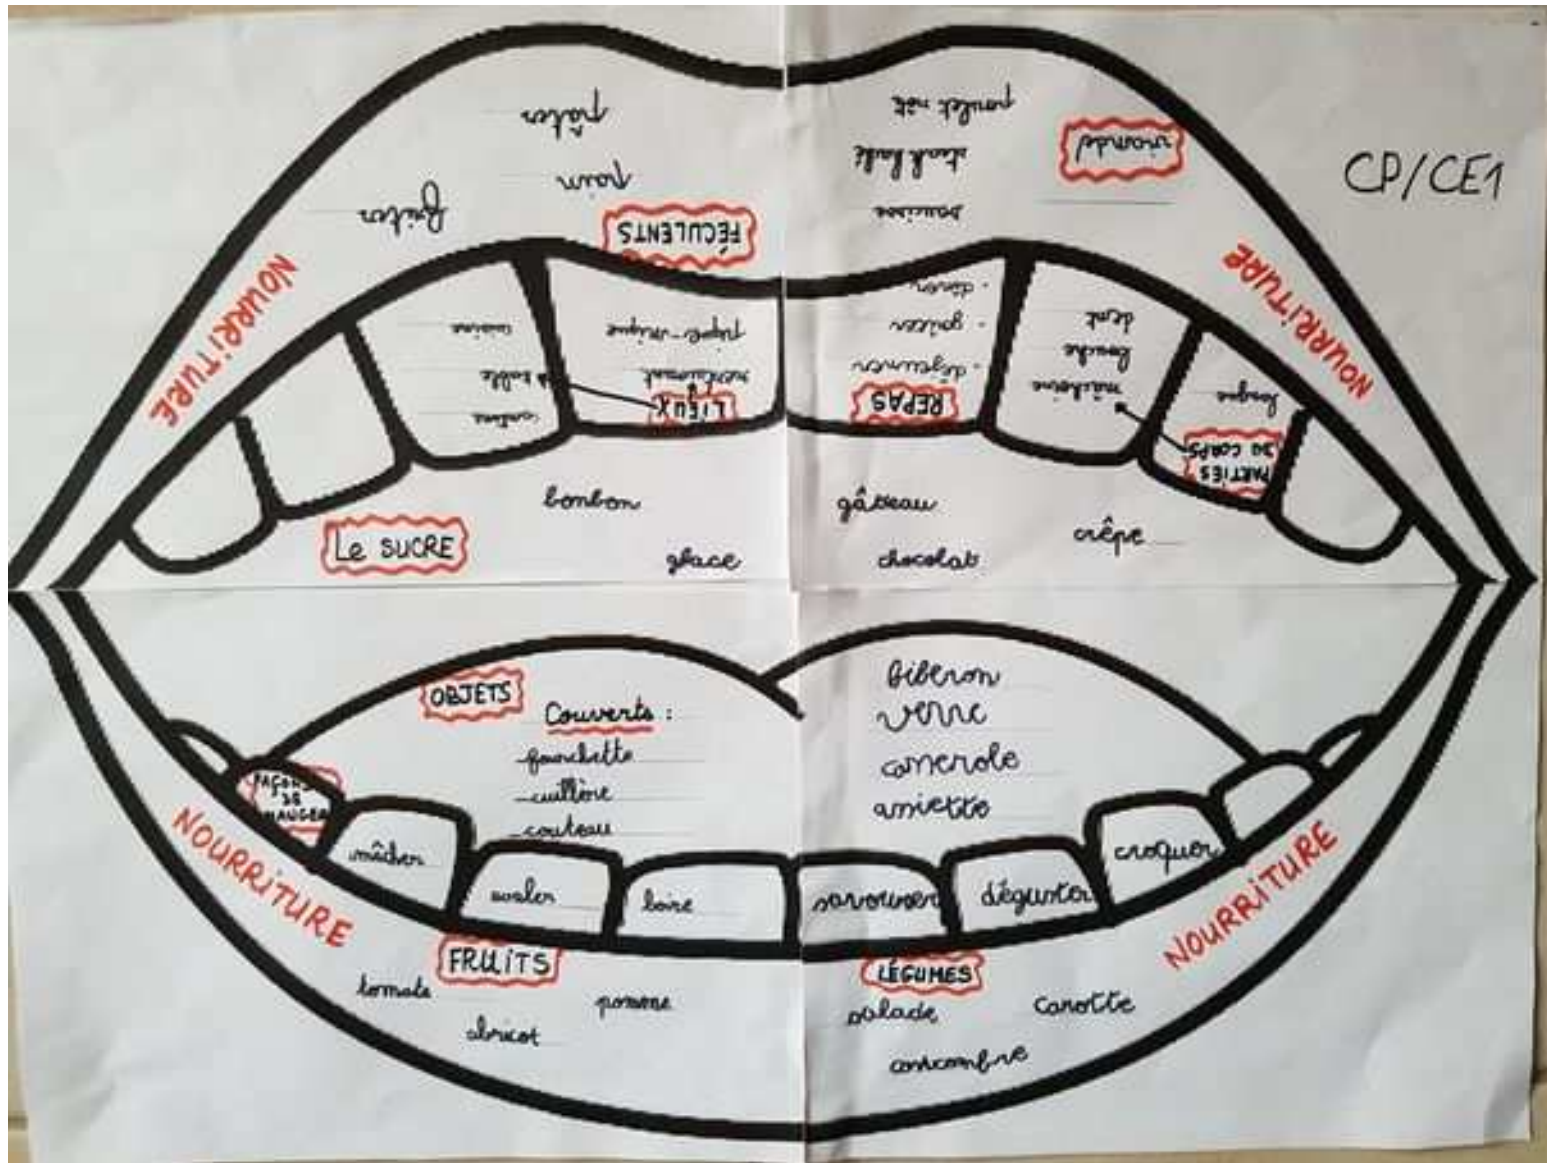 CP/CE1
NOURRITURE
NOURRITURE
pâtes
pain
frites
FÉCULENTS
poulet rôti
steak haché
saucisse
viande
cuisine
table
cantine
pique-nique
restaurant
LIEUX
- dîner
- goûter
- déjeuner
REPAS
dent
bouche
mâchoire
langue
PARTIES
DU CORPS
Le SUCRE
bonbon
glace
gâteau
chocolat
crêpe
OBJETS
Couverts :
- fourchette
- cuillère
- couteau
biberon
verre
casserole
assiette
FAÇONS
DE
MANGER
mâcher
avaler
boire
savourer
déguster
croquer
NOURRITURE
NOURRITURE
FRUITS
tomate
abricot
pomme
LÉGUMES
salade
carotte
concombre